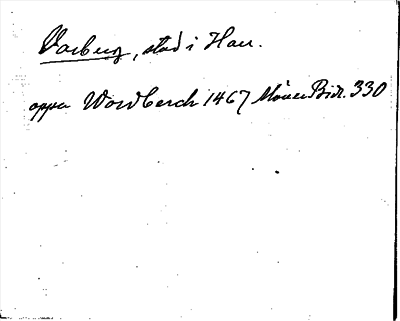 Varberg, stad i Hall.
oppa Wardberch 1467 Styffe Bidr. 330